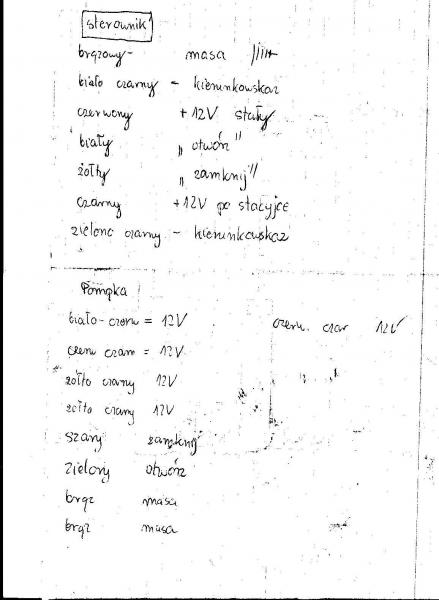 sterownik
brązowy - masa
biało czarny - kierunkowskaz
czerwony +12V stały
biały „otwórz"
żółty „zamknij"
czarny +12V po stacyjce
zielono czarny - kierunkowskaz
Pompka
biało-czerw = 12V czerw. czar 12V
czerw czarn = 12V
żółto czarny 12V
żółto czarny 12V
szary zamknij
zielony otwórz
brąz masa
brąz masa